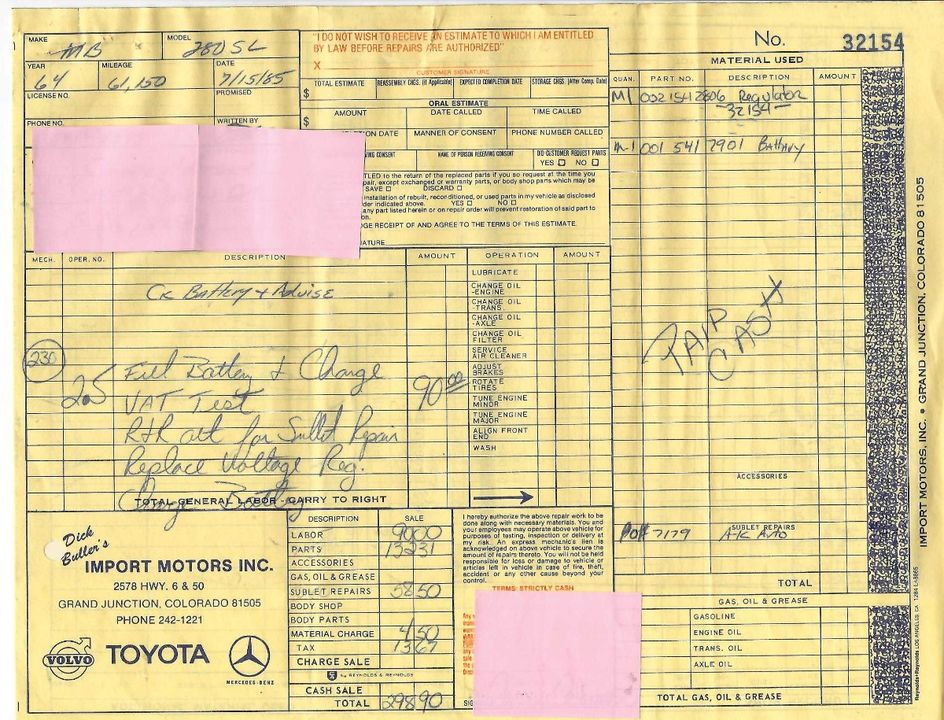 MAKE MB MODEL 280 SL
YEAR 64 MILEAGE 61,150 DATE 7/15/85
LICENSE NO. PROMISED
PHONE NO. WRITTEN BY
"I DO NOT WISH TO RECEIVE AN ESTIMATE TO WHICH I AM ENTITLED
BY LAW BEFORE REPAIRS ARE AUTHORIZED"
X
CUSTOMER SIGNATURE
TOTAL ESTIMATE REASSEMBLY CHGS. (If Applicable) EXPECTED COMPLETION DATE STORAGE CHGS. (After Comp. Date)
$
ORAL ESTIMATE
AMOUNT DATE CALLED TIME CALLED
$
ION DATE MANNER OF CONSENT PHONE NUMBER CALLED
VING CONSENT NAME OF PERSON RECEIVING CONSENT DID CUSTOMER REQUEST PARTS
YES NO
TLED to the return of the replaced parts if you so request at the time you
pair, except exchanged or warranty parts, or body shop parts which may be
SAVE DISCARD
installation of rebuilt, reconditioned, or used parts in my vehicle as disclosed
der indicated above. YES NO
any part listed herein or on repair order will prevent restoration of said part to
on.
GE RECEIPT OF AND AGREE TO THE TERMS OF THIS ESTIMATE.
ATURE
No. 32154
MATERIAL USED
QUAN. PART NO. DESCRIPTION AMOUNT
M1 002 154 2806 Regulator
32154
M-1 001 541 2901 Battery
PAID
CASH
ACCESSORIES
SUBLET REPAIRS
PO# 7179 A-K Auto
TOTAL
GAS, OIL & GREASE
GASOLINE
ENGINE OIL
TRANS. OIL
AXLE OIL
TOTAL GAS, OIL & GREASE
MECH. OPER. NO. DESCRIPTION AMOUNT OPERATION AMOUNT
CK Battery & Advise
230
2.5 Fill Battery & Charge 90 00
VAT Test
R+R alt for Sublet Repair
Replace Voltage Reg.
Charge Battery
TOTAL GENERAL LABOR - CARRY TO RIGHT
LUBRICATE
CHANGE OIL
-ENGINE
CHANGE OIL
-TRANS.
CHANGE OIL
-AXLE
CHANGE OIL
FILTER
SERVICE
AIR CLEANER
ADJUST
BRAKES
ROTATE
TIRES
TUNE ENGINE
MINOR
TUNE ENGINE
MAJOR
ALIGN FRONT
END
WASH
Dick
Buller's
IMPORT MOTORS INC.
2578 HWY. 6 & 50
GRAND JUNCTION, COLORADO 81505
PHONE 242-1221
VOLVO TOYOTA
MERCEDES-BENZ
DESCRIPTION SALE
LABOR 90 00
PARTS 132 31
ACCESSORIES
GAS, OIL & GREASE
SUBLET REPAIRS 58 50
BODY SHOP
BODY PARTS
MATERIAL CHARGE 4 50
TAX 13 67
CHARGE SALE
by REYNOLDS & REYNOLDS
CASH SALE
TOTAL 298 90
I hereby authorize the above repair work to be
done along with necessary materials. You and
your employees may operate above vehicle for
purposes of testing, inspection or delivery at
my risk. An express mechanic's lien is
acknowledged on above vehicle to secure the
amount of repairs thereto. You will not be held
responsible for loss or damage to vehicle or
articles left in vehicle in case of fire, theft,
accident or any other cause beyond your
control.
TERMS: STRICTLY CASH
IMPORT MOTORS, INC. • GRAND JUNCTION, COLORADO 81505